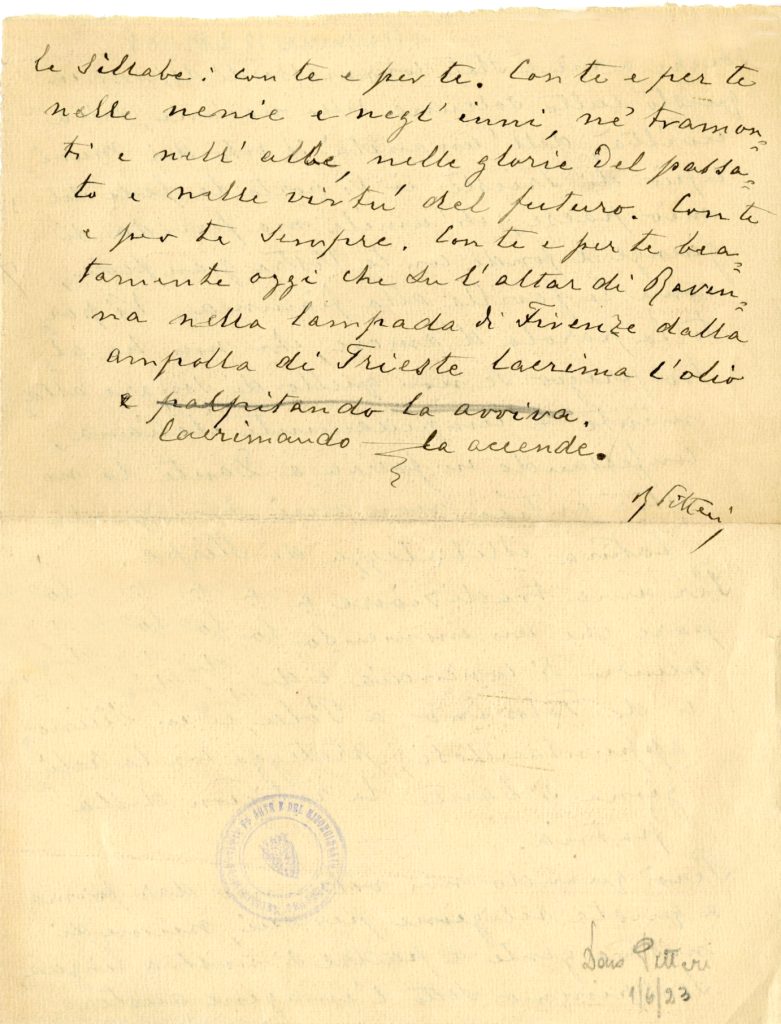 le sillabe: con te e per te. Con te e per te
nelle nenie e negl'inni, né tramon=
ti e nell'albe, nelle glorie del passa=
to e nelle virtù del futuro. Con te
e per te sempre. Con te e per te bea=
tamente oggi che su l'altar di Raven=
na nella lampada di Firenze dalla
ampolla di Trieste lacrima l'olio
e palpitando la avviva.
lacrimando la accende.
R Pitteri
Dono Pitteri
1/6/23